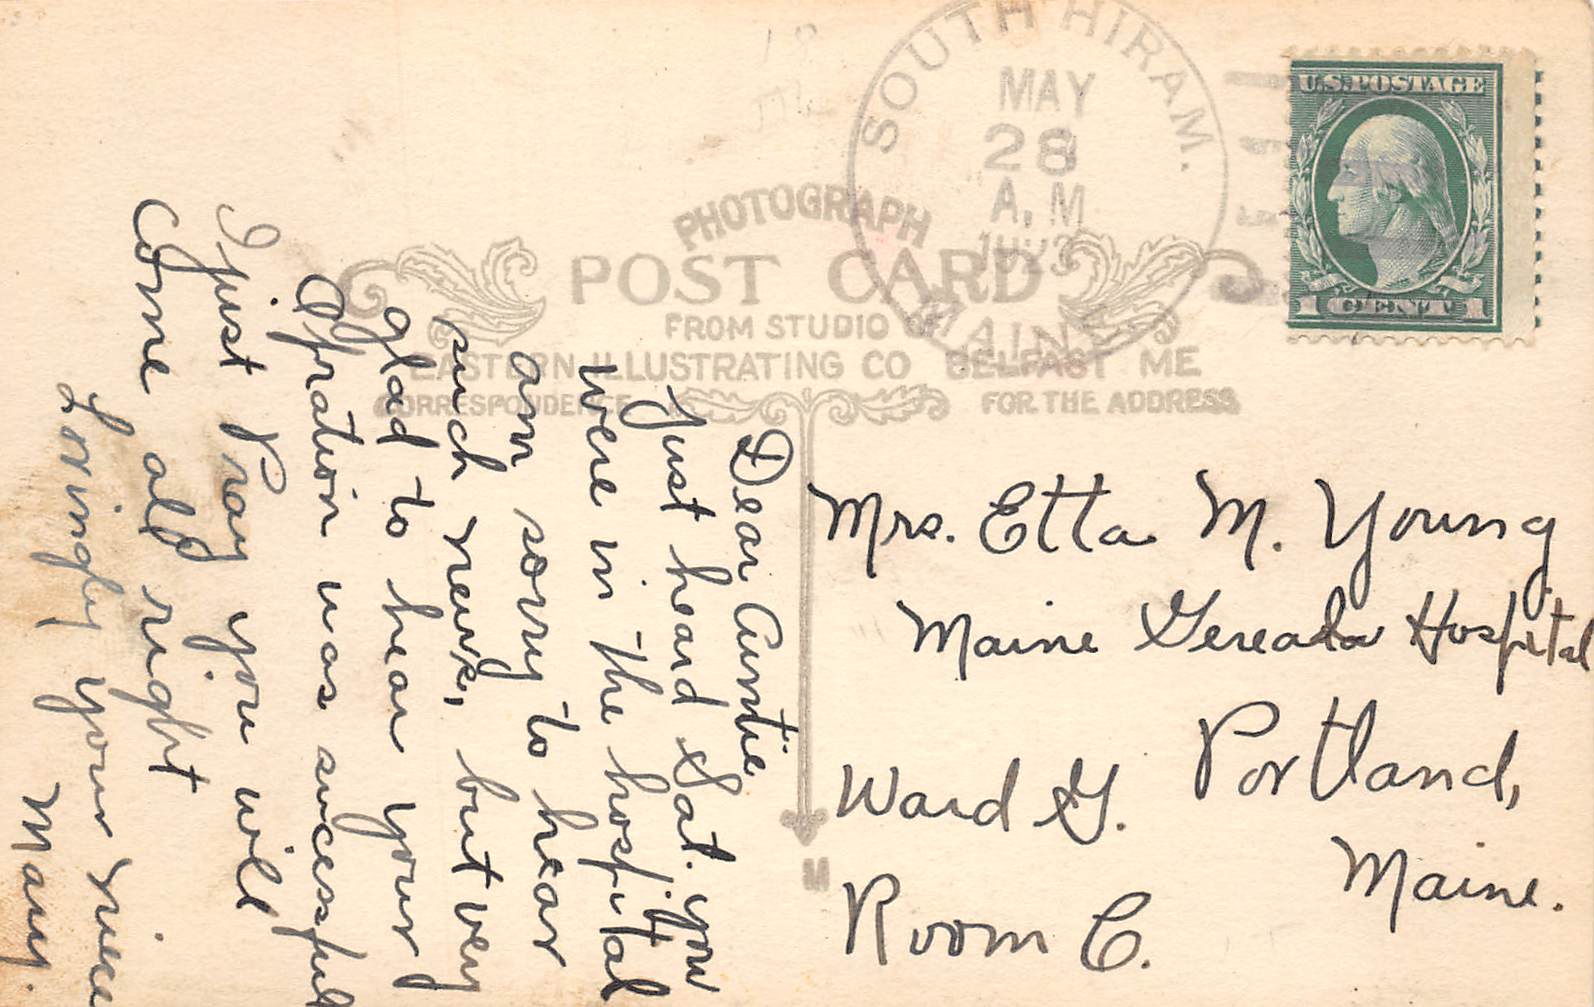 SOUTH HIRAM.
MAY
28
A.M
1923
MAINE
U.S. POSTAGE
1 CENT 1
PHOTOGRAPH
POST CARD
FROM STUDIO OF
EASTERN ILLUSTRATING CO BELFAST ME
CORRESPONDENCE
FOR THE ADDRESS
M
Dear Auntie
Just heard Sat. you
were in the hospital
am sorry to hear
such news, but very
glad to hear your
Opration was sucessful
I just Pray you will
come all right
Lovingly your niece
Mary.
Mrs. Etta M. Young
Maine Hospital
Portland,
Maine.
Ward G.
Room C.